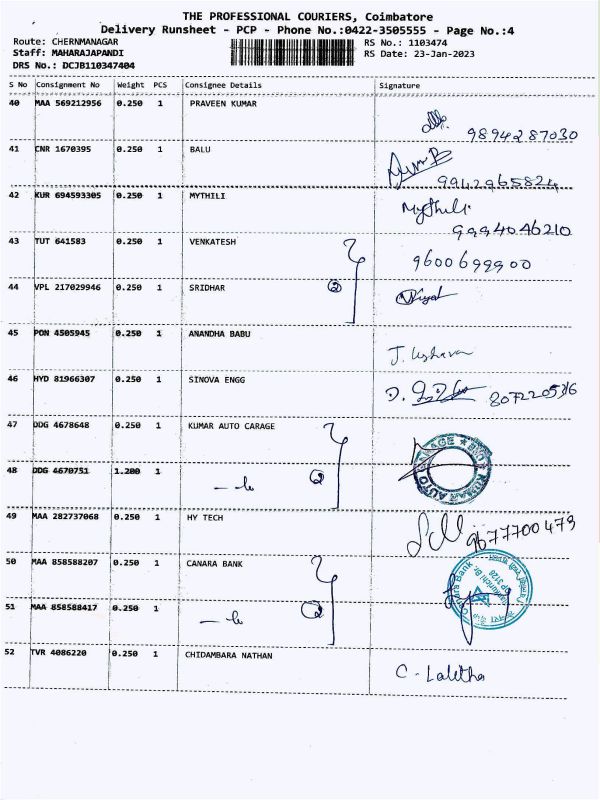 THE PROFESSIONAL COURIERS, Coimbatore
Delivery Runsheet - PCP - Phone No.:0422-3505555 - Page No.:4
Route: CHERNMANAGAR RS No.: 1103474
Staff: MAHARAJAPANDI RS Date: 23-Jan-2023
DRS No.: DCJB110347404
S No Consignment No Weight PCS Consignee Details Signature
40 MAA 569212956 0.250 1 PRAVEEN KUMAR
9894287030
41 CNR 1670395 0.250 1 BALU
9942965824
42 KUR 694593305 0.250 1 MYTHILI Mythili
9994046210
43 TUT 641583 0.250 1 VENKATESH
9600699900
44 VPL 217029946 0.250 1 SRIDHAR ②
45 PON 4505945 0.250 1 ANANDHA BABU
J.
46 HYD 81966307 0.250 1 SINOVA ENGG D.
47 DDG 4678648 0.250 1 KUMAR AUTO CARAGE
48 DDG 4670751 1.200 1 ②
KUMAR AUTO
49 MAA 282737068 0.250 1 HY TECH
9677700479
50 MAA 858588207 0.250 1 CANARA BANK
Canara Bank
51 MAA 858588417 0.250 1 ②
52 TVR 4086220 0.250 1 CHIDAMBARA NATHAN
C. Lalitha